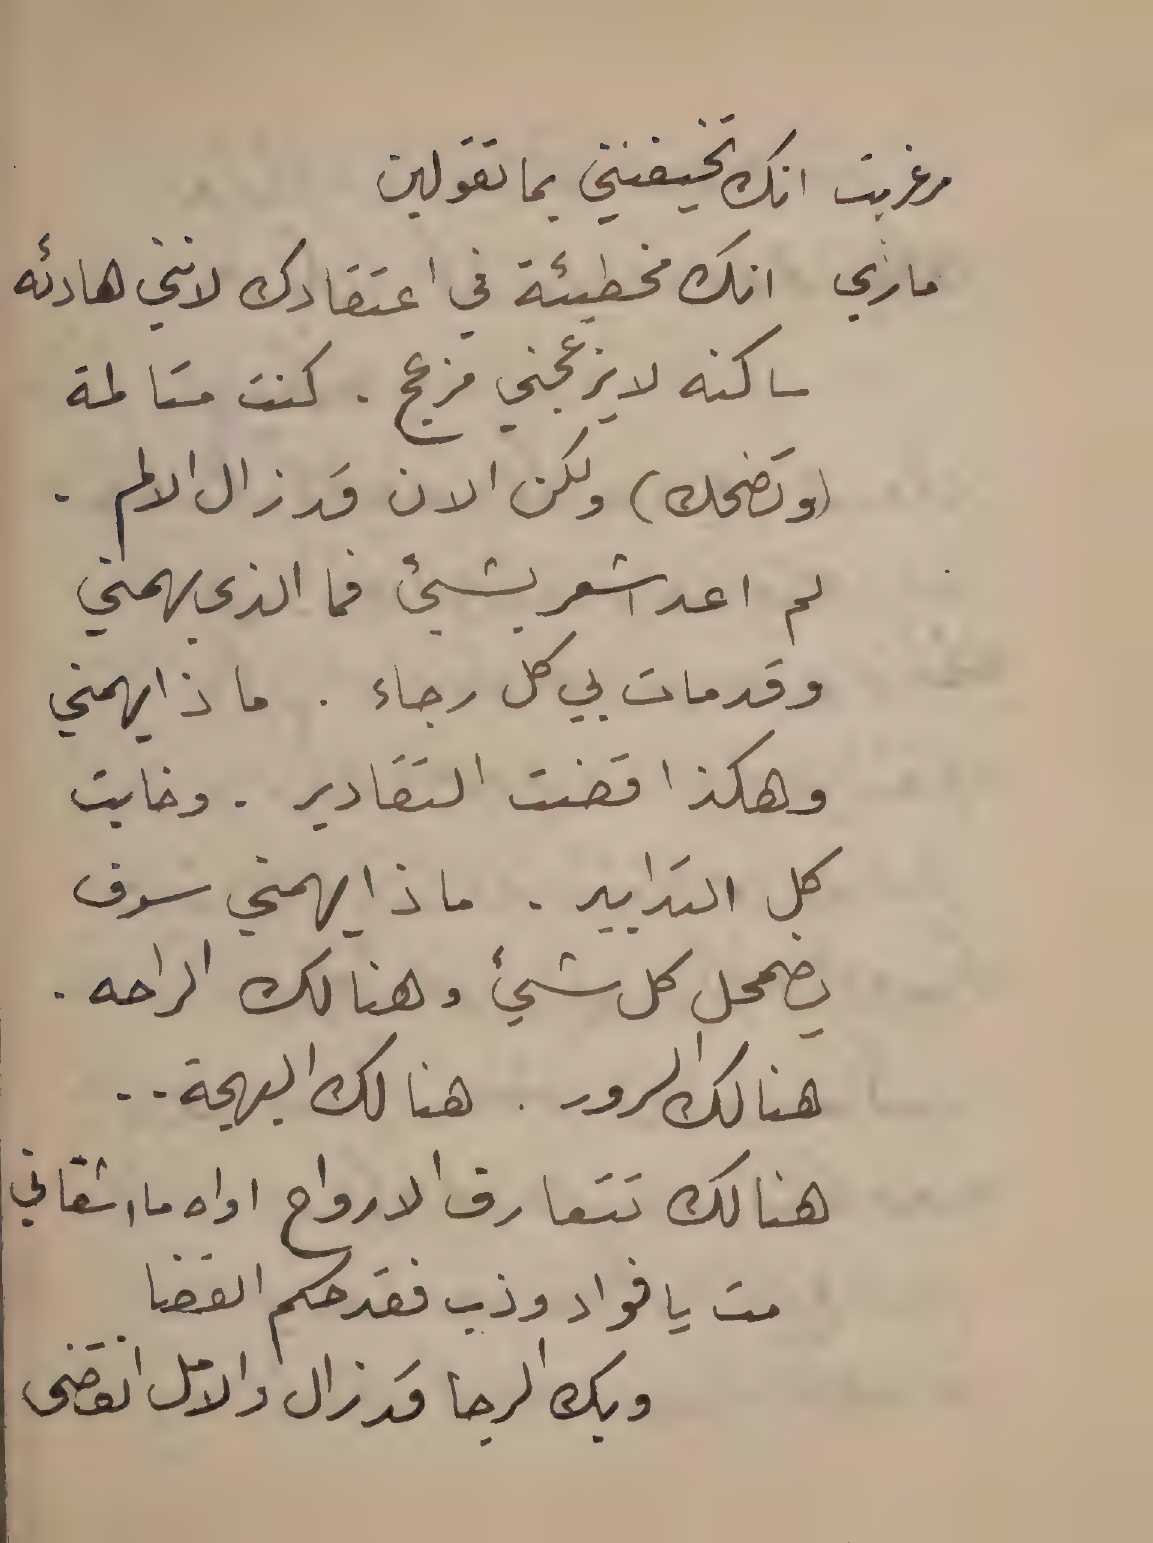 مرغريت انك تخيفنني بما تقولين
ماري انك مخطيئة في اعتقادك لانني هادئه
ساكنه لا يزعجني مزعج . كنت متالمة
(وتضحك) ولكن الان قد زال الالم .
لم اعد اشعر بشيئ فما الذي يهمني
وقد مات بي كل رجاء . ماذا يهمني
وهكذا قضت التقادير . وخابت
كل التدابير . ماذا يهمني سوف
يضمحل كل شيئ وهنالك الراحه .
هنالك السرور . هنالك البهجة ..
هنالك تتعارف الارواح اواه ما اشقاني
مت يا فواد وذب فقد حكم القضا
وبك الرجا قد زال والامل انقضى